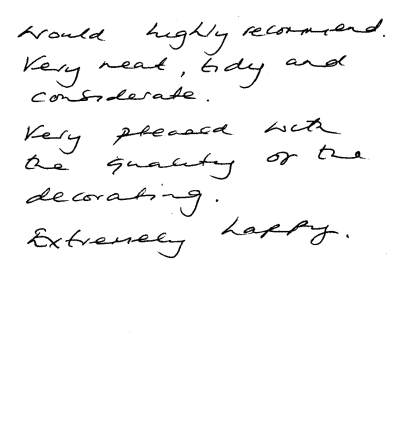 Would highly recommend.
Very neat, tidy and
considerate.
Very pleased with
the quality of the
decorating.
Extremely happy.